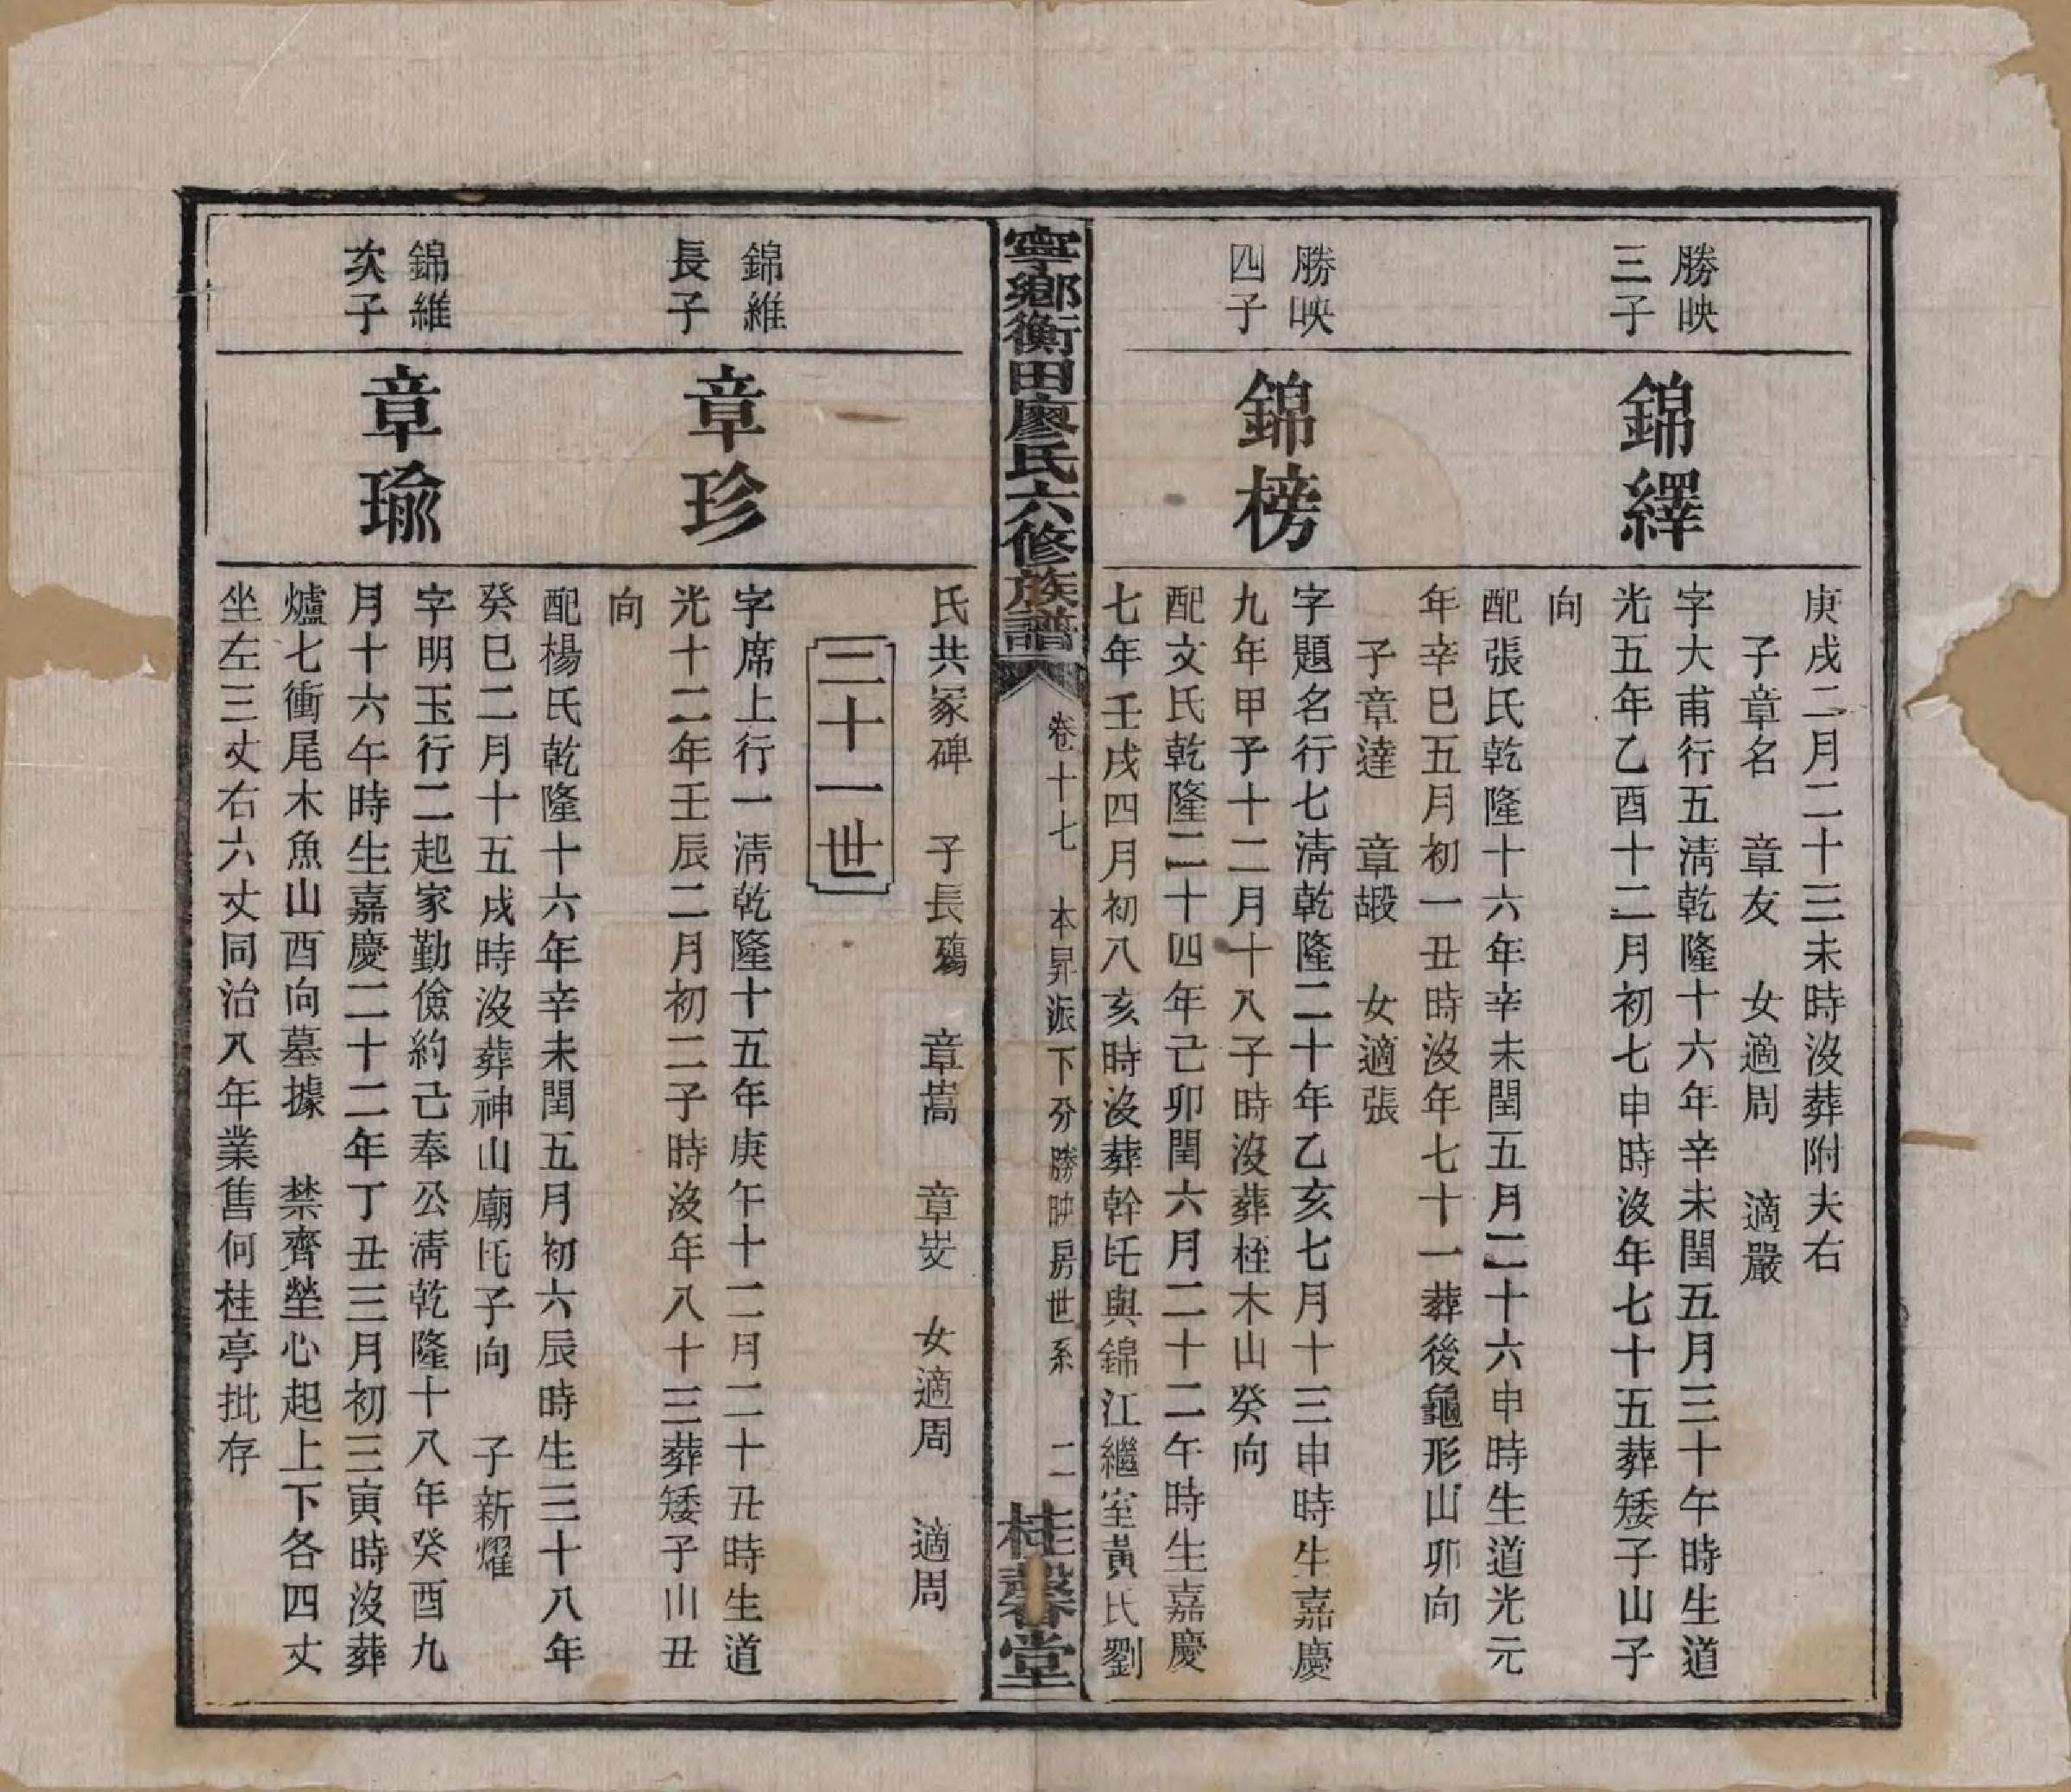 庚戌二月二十三未時沒葬附夫右
子章名 章友 女適周 適嚴
勝映
三子
錦繹
字大甫行五淸乾隆十六年辛未閏五月三十午時生道
光五年乙酉十二月初七申時沒年七十五葬矮子山子
向
配張氏乾隆十六年辛未閏五月二十六申時生道光元
年辛巳五月初一丑時沒年七十一葬後龜形山卯向
子章達 章嘏 女適張
勝映
四子
錦榜
字題名行七淸乾隆二十年乙亥七月十三申時生嘉慶
九年甲子十二月十八子時沒葬桎木山癸向
配文氏乾隆二十四年己卯閏六月二十二午時生嘉慶
七年壬戌四月初八亥時沒葬幹㘰與錦江繼室黃氏劉
寧鄉衡田廖氏六修族譜
卷十七 本昇派下分勝映房世系 二
桂馨堂
氏共冢碑 子長殤 章嵩 章岁 女適周 適周
二十一世
錦維
長子
章珍
字席上行一淸乾隆十五年庚午十二月二十丑時生道
光十二年壬辰二月初二子時沒年八十三葬矮子山丑
向
配楊氏乾隆十六年辛未閏五月初六辰時生三十八年
癸巳二月十五戌時沒葬神山廟㘰子向 子新燿
錦維
次子
章瑜
字明玉行二起家勤儉約己奉公淸乾隆十八年癸酉九
月十六午時生嘉慶二十二年丁丑三月初三寅時沒葬
爐七衝尾木魚山酉向墓據 禁齊塋心起上下各四丈
坐左三丈右六丈同治八年業售何桂亭批存